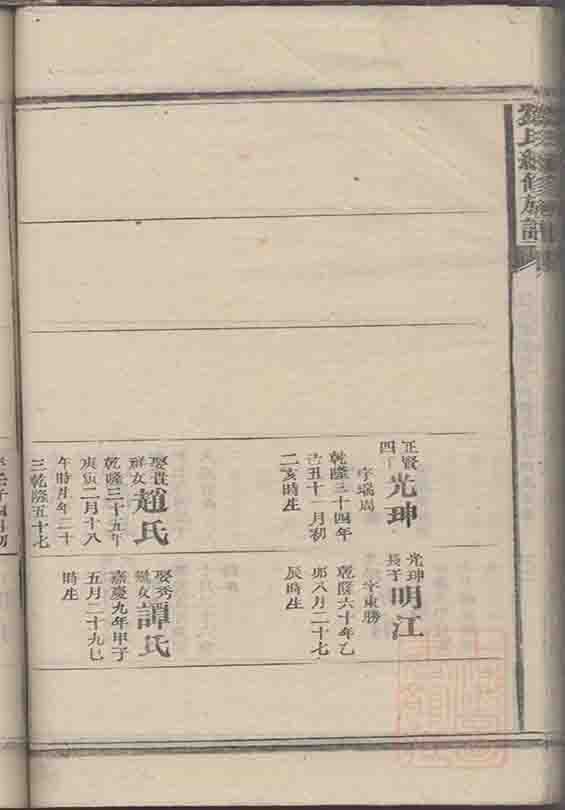 氏續修族譜
正賢
四子
光珅
字瑞周
乾隆三十四年
己丑十一月初
二亥時生
娶貴
祥女
趙氏
乾隆三十五年
庚寅二月十八
午時生年二十
三乾隆五十七
光珅
長子
明江
字東勝
乾隆六十年乙
卯八月二十七
辰時生
娶秀
女
譚氏
嘉慶九年甲子
五月二十九巳
時生